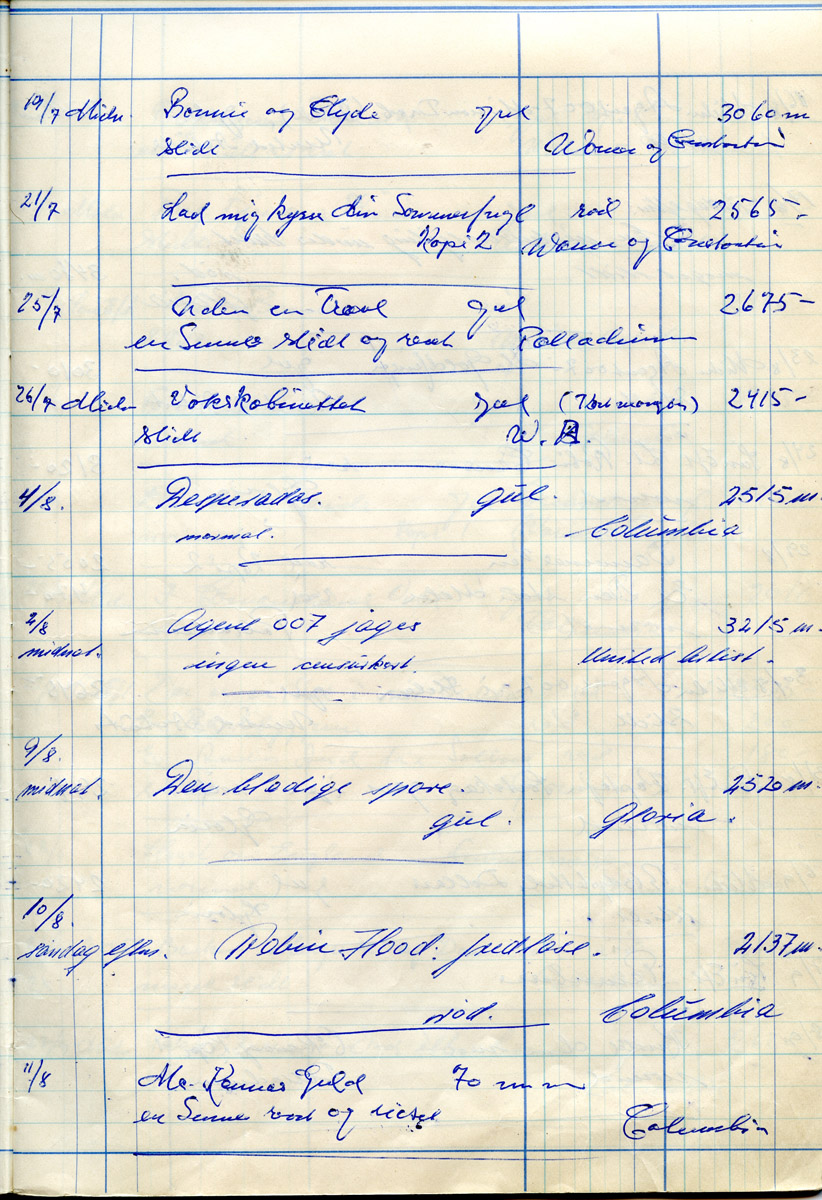 19/7 Midn. Bonnie og Clyde gul 3060 m
slidt Warner og Constantin
21/7 Lad mig kysse din Sommerfugl rød 2565-
Kopi 2 Warner og Constantin
25/7 Uden en Trævl gul 2675-
en Smule slidt og Palladium
26/7 Midn Vokskabinettet gul 2415-
slidt W.
4/8. Desperados. gul. 2515 m.
normal. Columbia
2/8 Agent 007 jages 3215 m.
midnat. ingen censurkort. United Artist.
9/8.
midnat. Den blodige spore. 2520 m.
gul. Gloria.
10/8.
søndag efterm. Robin Hood. fredløse. 2137 m.
rød. Columbia
11/8 Mc. Kennas Guld 70 mm
en Smule og Columbia